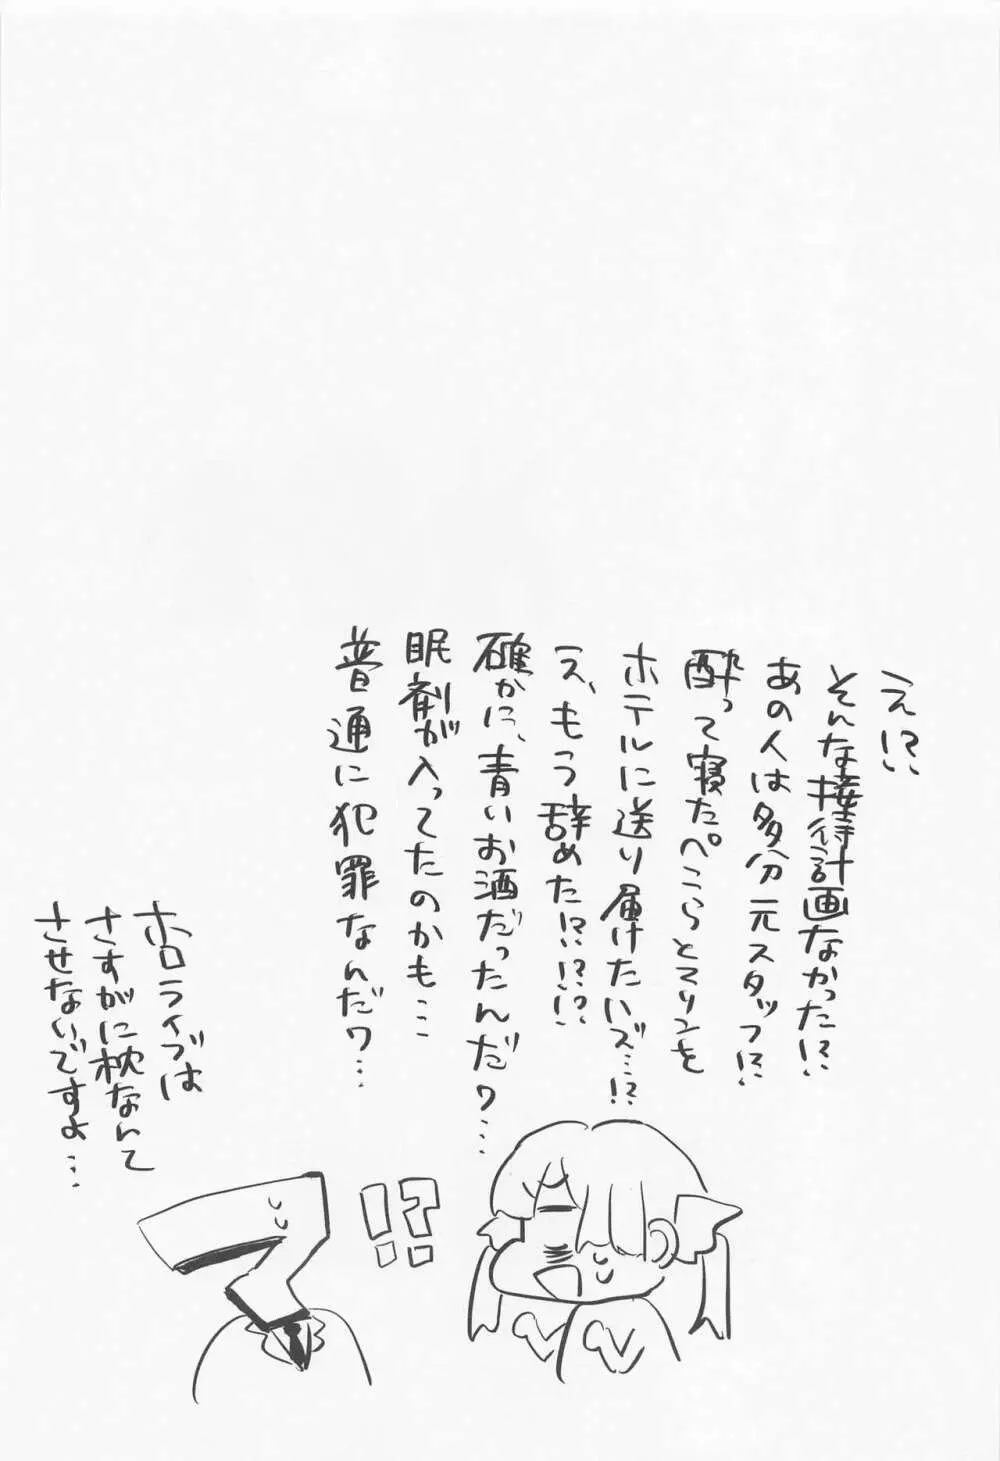 え!?
そんな接待計画なかった!?
あの人は多分元スタッフ!?
酔って寝たぺこらとマリンを
ホテルに送り届けたハズ…!?
え、もう辞めた!?!?!?
確かに、青いお酒だったんだワ…
眠剤が入ってたのかも…
普通に犯罪なんだワ…
!?
ホロライブは
さすがに枕なんて
させないですよ…